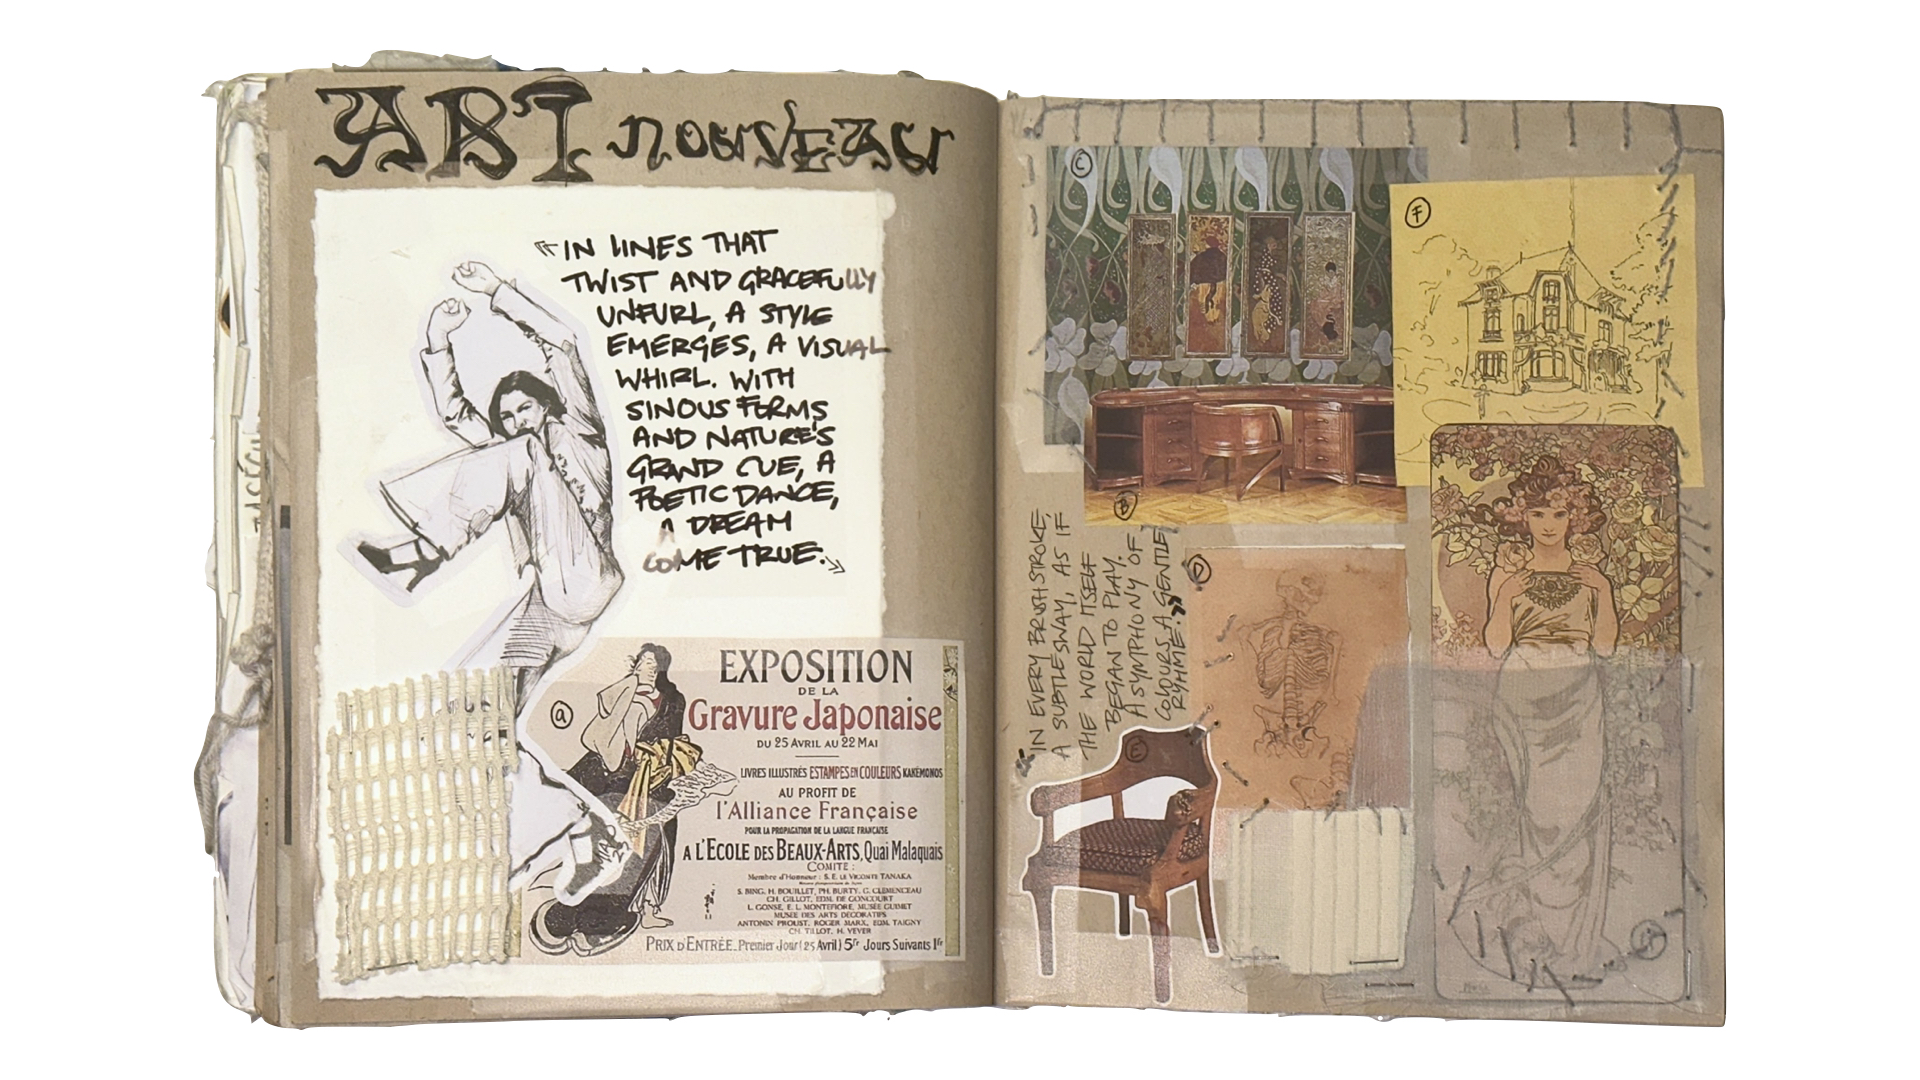 ART nouveau
"IN LINES THAT
TWIST AND GRACEFULLY
UNFURL, A STYLE
EMERGES, A VISUAL
WHIRL. WITH
SINOUS FORMS
AND NATURE'S
GRAND CUE, A
POETIC DANCE,
A DREAM
COME TRUE."
a
EXPOSITION
DE LA
Gravure Japonaise
DU 25 AVRIL AU 22 MAI
LIVRES ILLUSTRÉS ESTAMPES EN COULEURS KAKÉMONOS
AU PROFIT DE
l'Alliance Française
POUR LA PROPAGATION DE LA LANGUE FRANÇAISE
A L'ECOLE DES BEAUX-ARTS, Quai Malaquais
COMITÉ :
Membre d'Honneur : S. E. LE VICOMTE TANAKA
S. BING, H. BOUILLET, PH. BURTY, G. CLEMENCEAU
CH. GILLOT, EDM. DE GONCOURT
L. GONSE, E. L. MONTEFIORE, MUSÉE GUIMET
MUSÉE DES ARTS DÉCORATIFS
ANTONIN PROUST, ROGER MARX, EDM. TAIGNY
CH. TILLOT, H. VEVER
PRIX D'ENTRÉE. Premier Jour (25 Avril) 5fr Jours Suivants 1fr
C
F
B
D
E
"IN EVERY BRUSHSTROKE,
A SUBTLE SWAY, AS IF
THE WORLD ITSELF
BEGAN TO PLAY.
A SYMPHONY OF
COLOURS A GENTLE
RYHME."